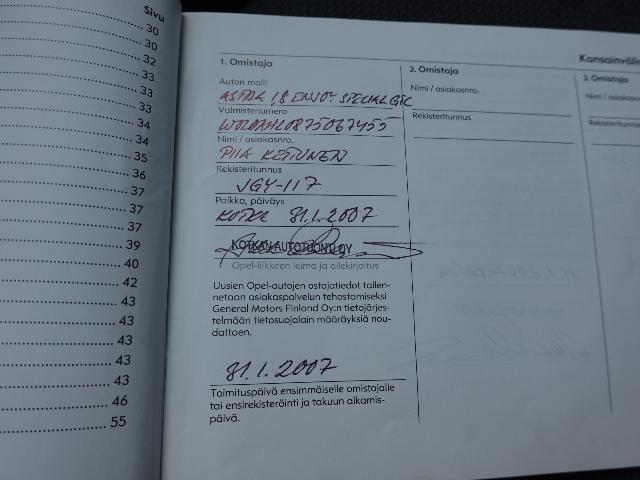 Sivu
30
30
32
33
33
33
34
34
35
36
37
37
37
39
40
42
43
43
43
43
43
46
55
Kansainväli
1. Omistaja
Auton malli
ASTRA 1,8 ENJOY SPECIAL GTC
Valmistenumero
W0L0AHL0875067455
Nimi / asiakasnro.
PIIA KETTUNEN
Rekisteritunnus
JGY-117
Paikka, päiväys
KOTKA 31.1.2007
KOTKAN AUTOTUONTI OY
Opel-liikkeen leima ja allekirjoitus
Uusien Opel-autojen ostajatiedot tallen-
netaan asiakaspalvelun tehostamiseksi
General Motors Finland Oy:n tietojärjes-
telmään tietosuojalain määräyksiä nou-
dattaen.
31.1.2007
Toimituspäivä ensimmäiselle omistajalle
tai ensirekisteröinti ja takuun alkamis-
päivä.
2. Omistaja
Nimi / asiakasnro.
Rekisteritunnus
3. Omistaja
Nimi / asiakasnro.
Rekisteritunnus